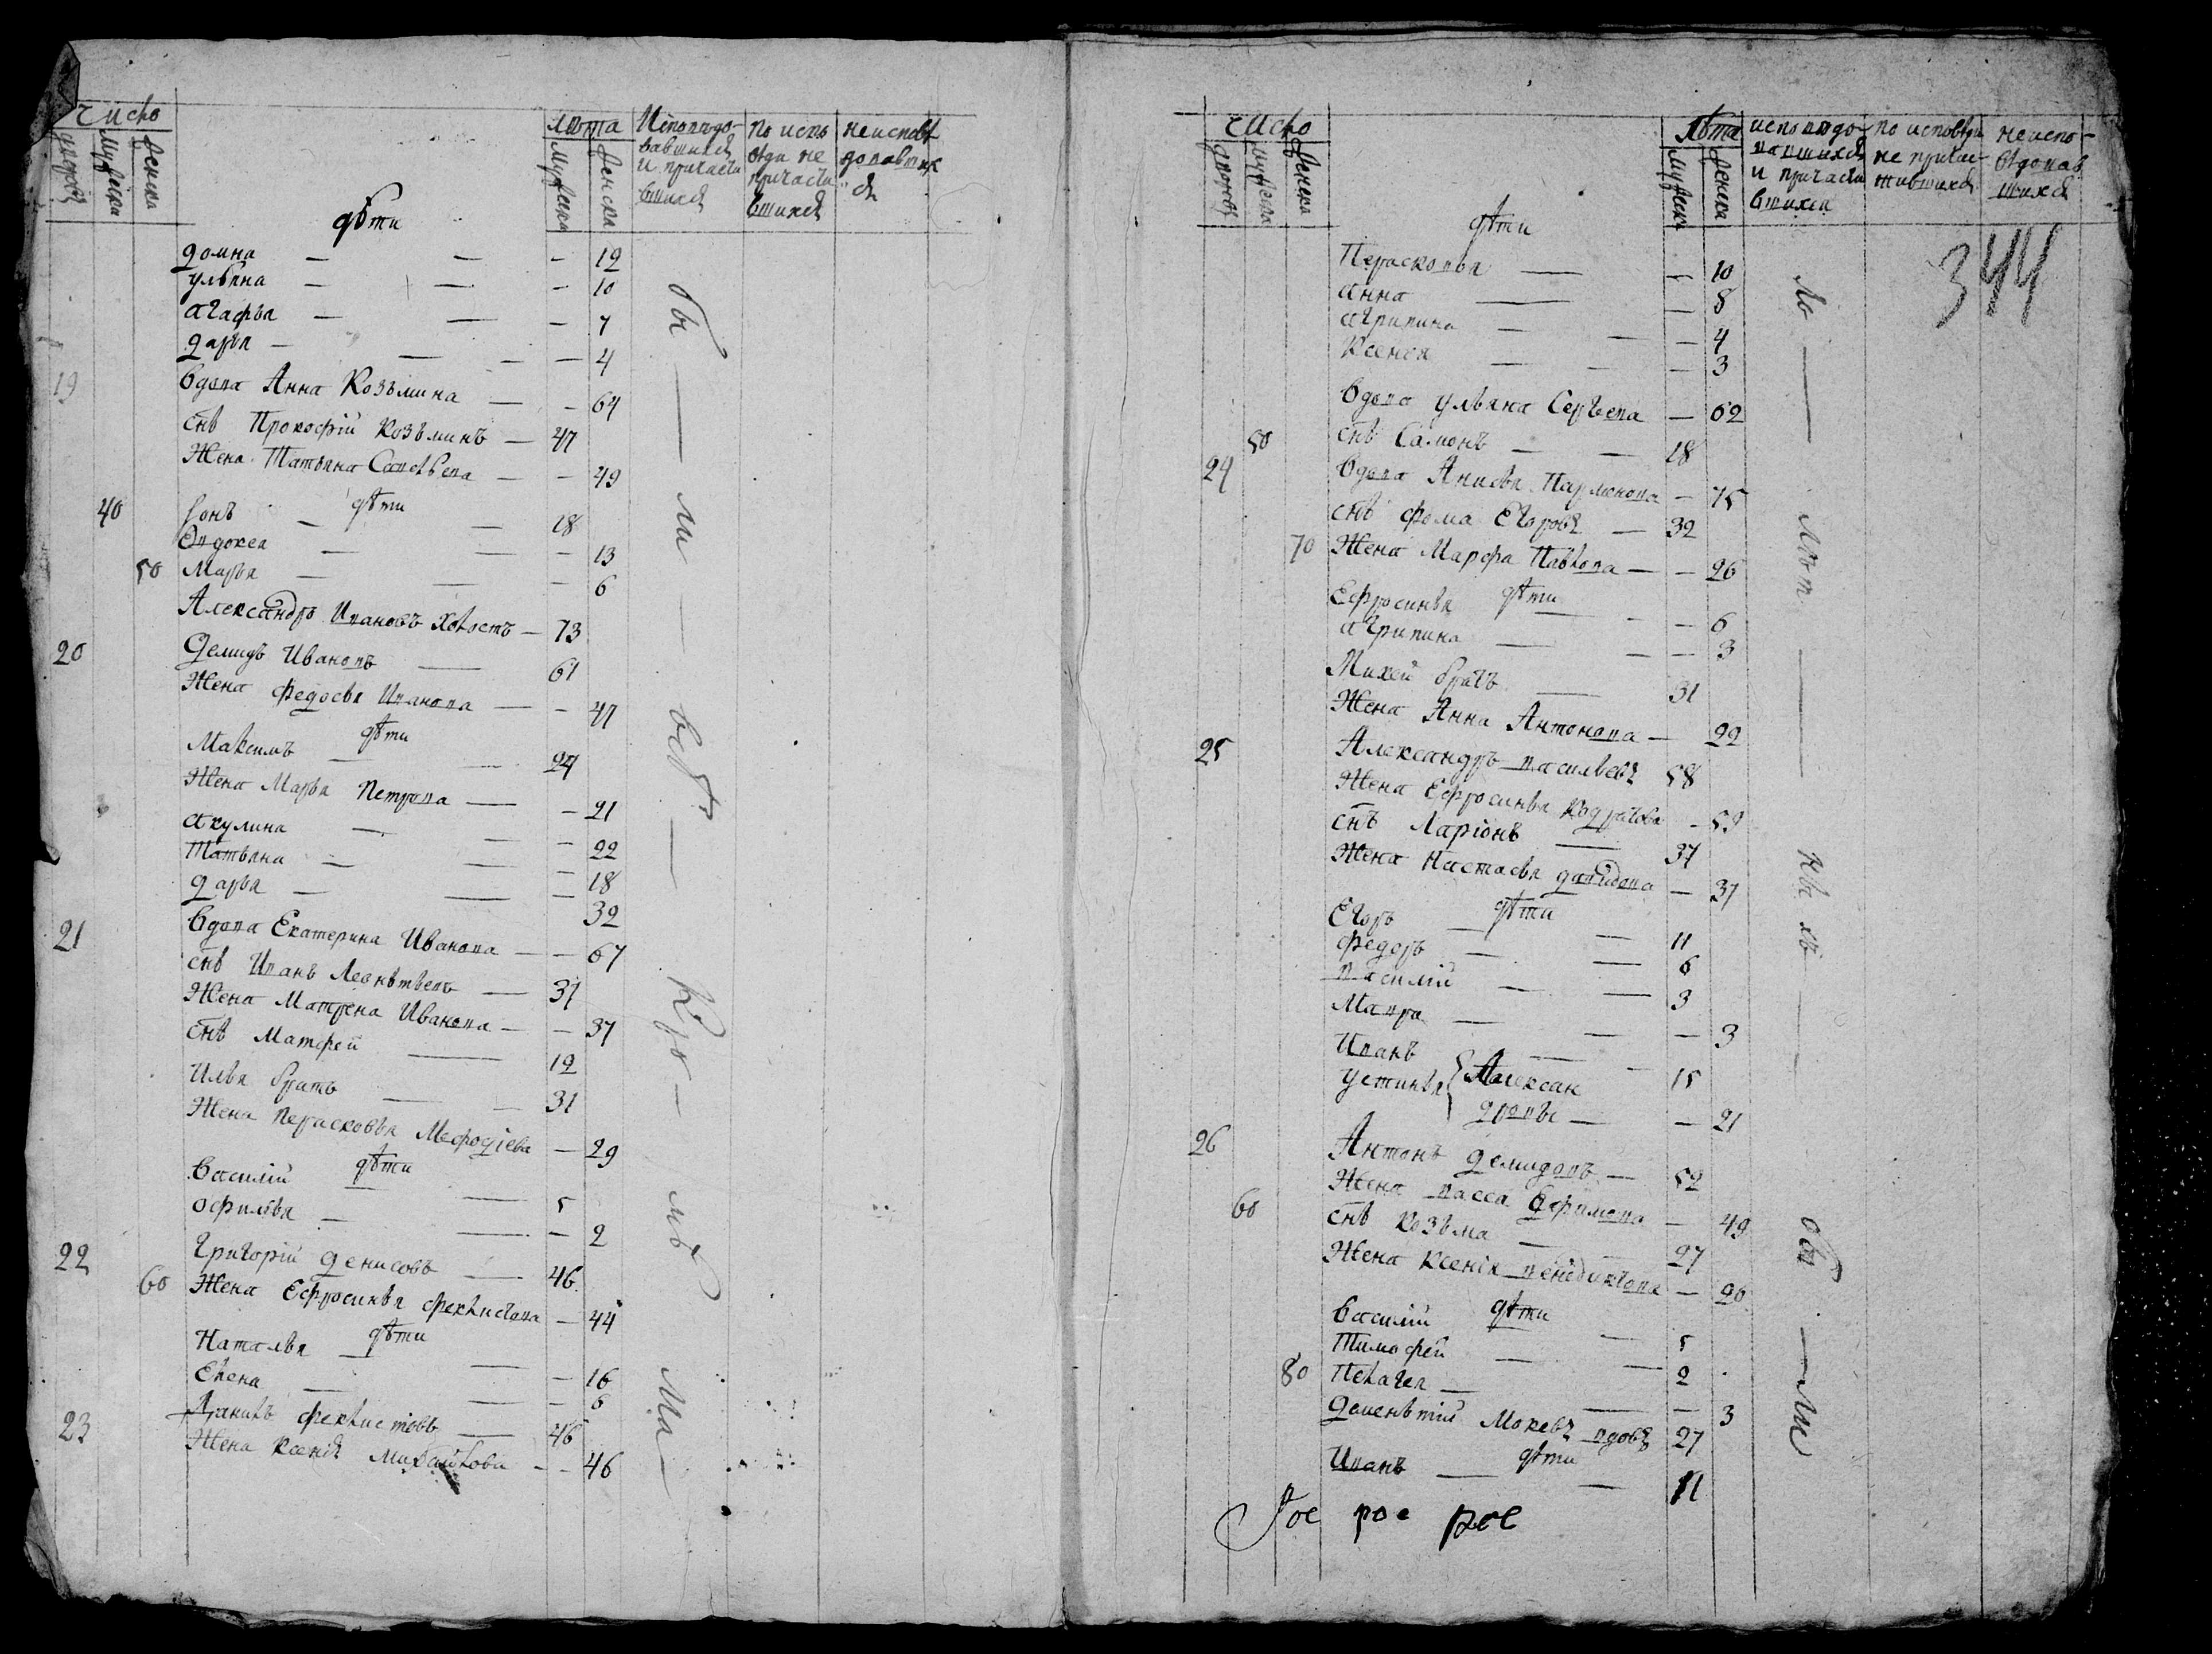 Число
дворовъ
мужеска
женска
лѣта
мужеска
женска
Исповѣдо-
вавшихся
и причасти
вшихся
по испо
вѣди не
причасти
вшихся
неисповѣ
довавших
ся
дѣти
домна — — — 12
ульяна — — — 10
агафья — — — 7
дарья — — — 4
19 вдова Анна Козьмина — — 64
снъ Прокофій козьминъ — 47
Жена Татьяна Савельева — — 49
дѣти
40 — — 18
Евдокея — — — 13
50 Марья — — — 6
Александръ Ивановъ холостъ — 73
20 Демидъ Ивановъ — 61
Жена Федосья Иванова — — 47
дѣти
Максимъ — — 24
Жена Марья Петрова — — 21
акулина — — 22
Татьяна — — — 18
дарья — — — 32
21 вдова Екатерина Иванова — — 67
снъ Иванъ Леонтьевъ — 37
Жена Матрена Иванова — — 37
снъ Матфей — 12
Илья братъ — — 31
Жена Перасковья Мефодіева — 29
дѣти
Василій — — 5
офимья — — — 2
22 Григорій денисовъ — 46
60 Жена Ефросинья Фектистова — 44
дѣти
Наталья — — — 16
Елена — — — 6
23 Данилъ Фектистовъ — 46
Жена Ксенія Михайлова — — 46
бы — ли — всѣ — Кро — мѣ Ма —
Число
дворовъ
мужеска
женска
лѣта
мужеска
женска
исповѣдо-
вавшихся
и причасти
вшихся
по исповѣди
не причас
тившихся
неиспо-
вѣдовав
шихся
344
дѣти
Перасковья — — 10
анна — — 8
агрипина — — — 4
Ксенія — — — 3
вдова ульяна Сергѣева — 62
50 снъ Самонъ — — 18
24 вдова Анисья Парменова — 75
снъ Фома Егоровъ — 32
70 Жена Марфа Павлова — — 26
дѣти
Ефросинья — — — 6
агрипина — — — 3
Михей братъ — 31
Жена Анна Антонова — 22
25 Александръ васильевъ 58
Жена Ефросинья Кодратова - 59
снъ Ларіонъ — 37
Жена Настасья давидова — 37
дѣти
Егоръ — — 11
Федоръ — — 6
василій — — 3
Мавра — — — 3
Иванъ — — 15
устинья Алексан
дровы — — 21
26 Антонъ демидовъ — 52
Жена васса Ефимова — 49
60 снъ козьма — — 27
Жена Ксенія венедиктова — 26
дѣти
Василій — 5
Тимофей — — 2
80 Пелагея — — — 3
дементій Мокевъ вдовъ 27
дѣти
Иванъ — — 11
ло — лѣт — ны хъ — бы — ли
рое рое